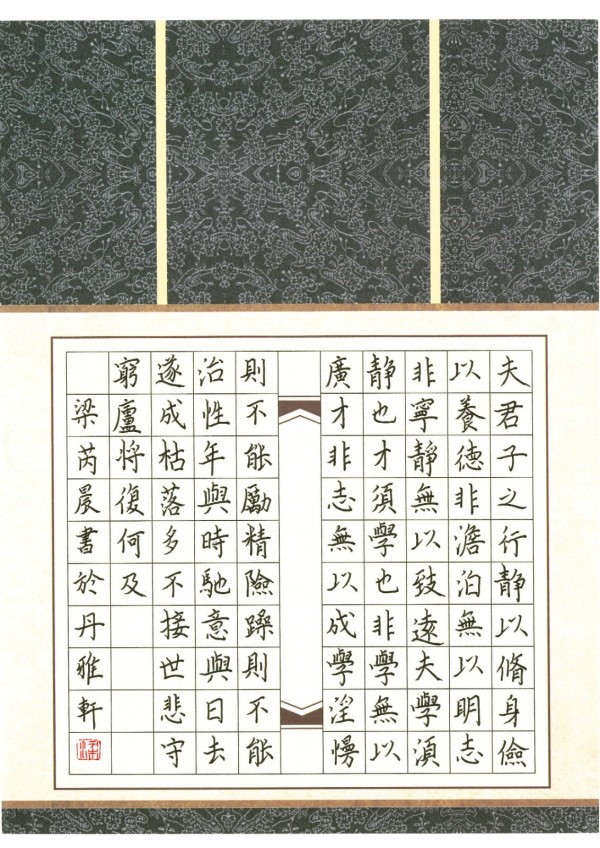 夫君子之行静以脩身儉
以養德非澹泊無以明志
非寧静無以致遠夫學湏
静也才須學也非學無以
廣才非志無以成學淫慢
則不能勵精險躁則不能
治性年與時馳意與日去
遂成枯落多不接世悲守
窮廬將復何及
梁芮晨書於丹雅軒